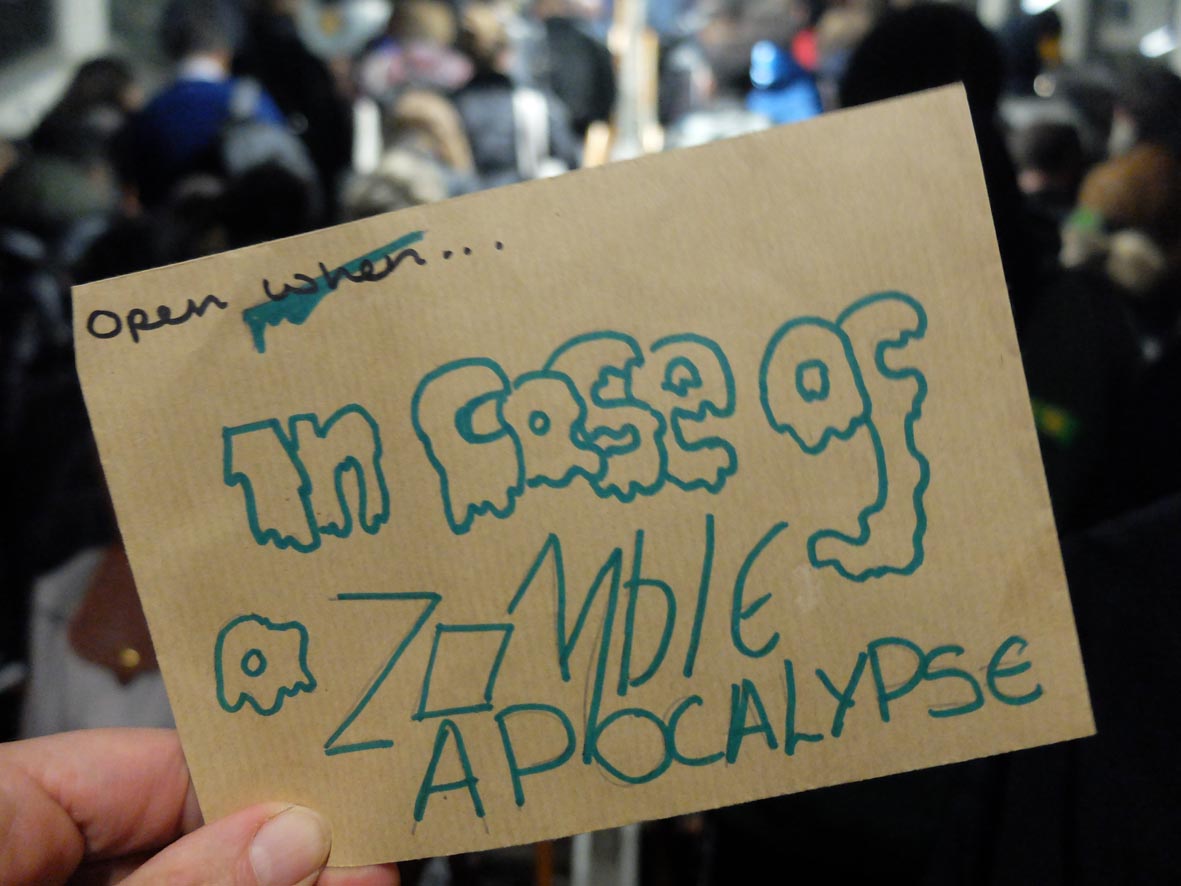 open when...
in case of
a ZOMbIE
APOCALYPSE